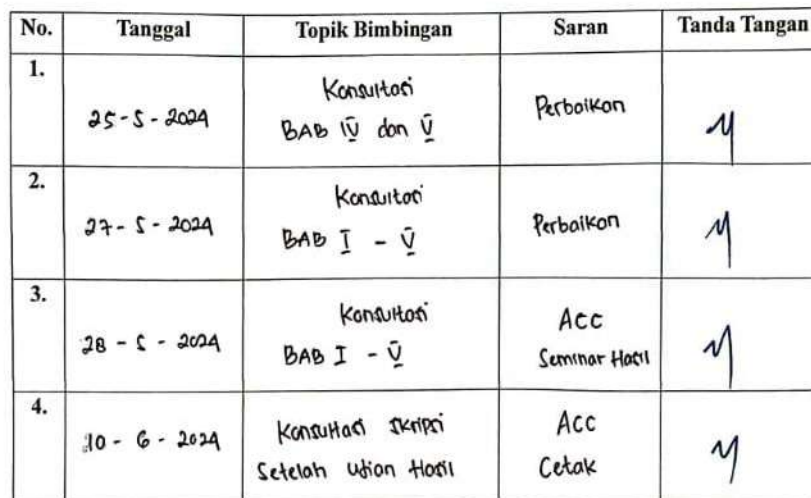 No. Tanggal Topik Bimbingan Saran Tanda Tangan
1.
25-5-2024
Konsultasi
BAB IV dan V
Perbaikan
2.
27-5-2024
Konsultasi
BAB I - V
Perbaikan
3.
28-5-2024
Konsultasi
BAB I - V
Acc
Seminar Hasil
4.
10-6-2024
Konsultasi Skripsi
Setelah Ujian Hasil
Acc
Cetak